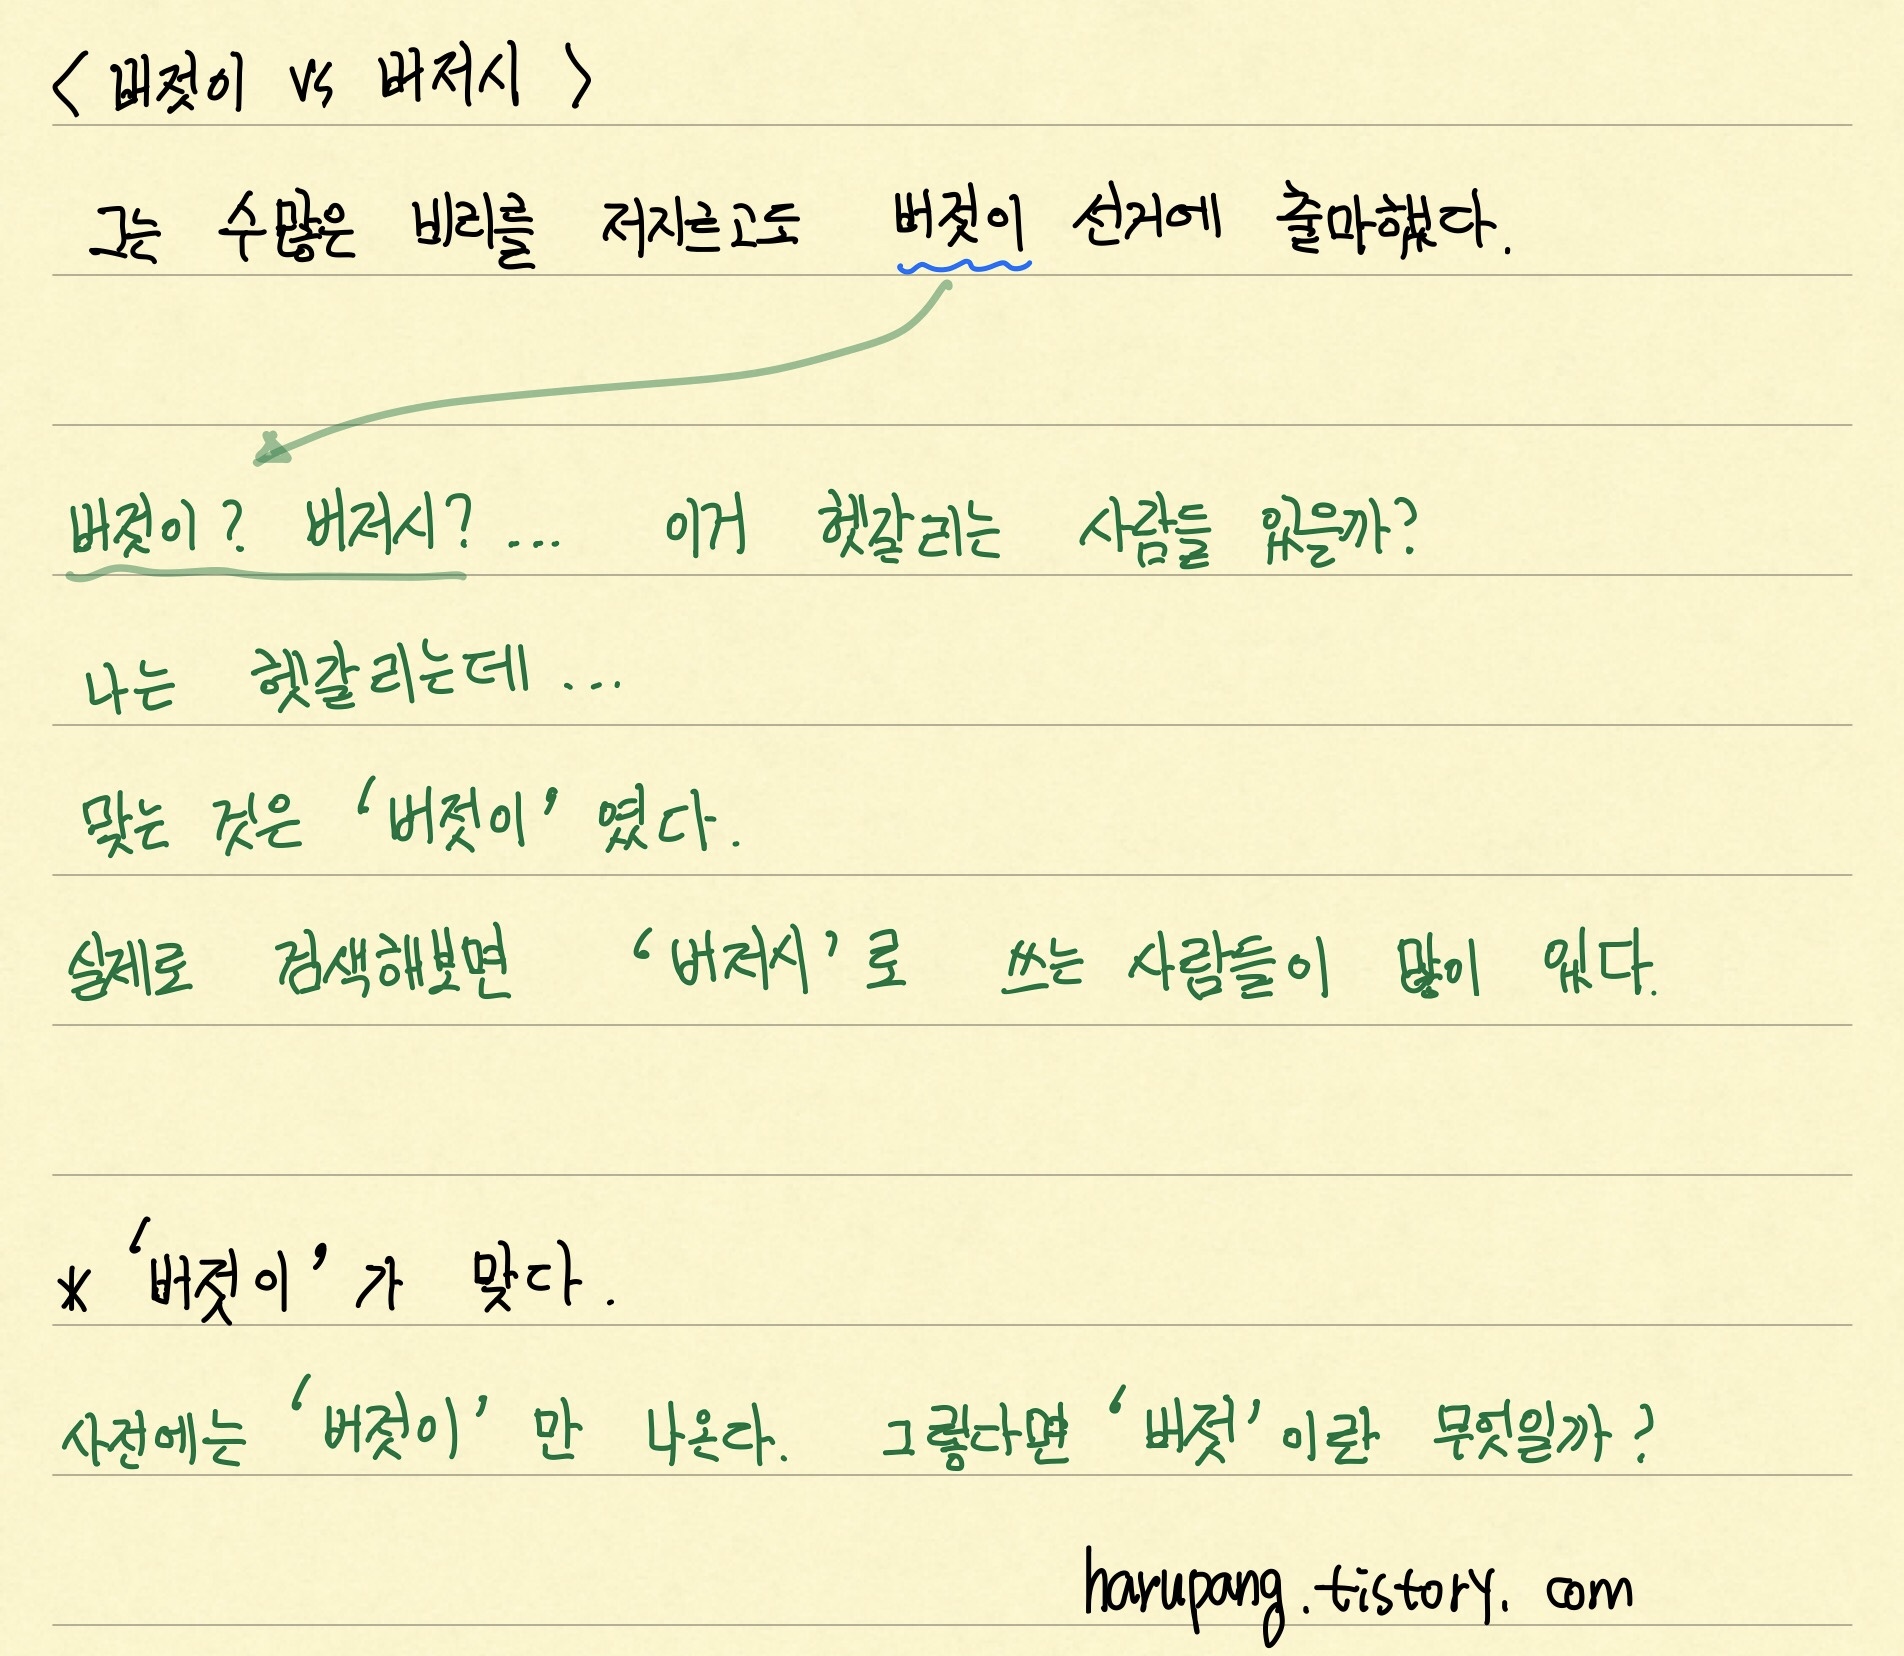 < 버젓이 vs 버저시 >
그는 수많은 비리를 저지르고도 버젓이 선거에 출마했다.
버젓이? 버저시? ... 이거 헷갈리는 사람들 있을까?
나는 헷갈리는데 ...
맞는 것은 '버젓이' 였다.
실제로 검색해보면 '버저시' 로 쓰는 사람들이 많이 있다.
* '버젓이' 가 맞다.
사전에는 '버젓이' 만 나온다. 그렇다면 '버젓' 이란 무엇일까?
harupang.tistory.com